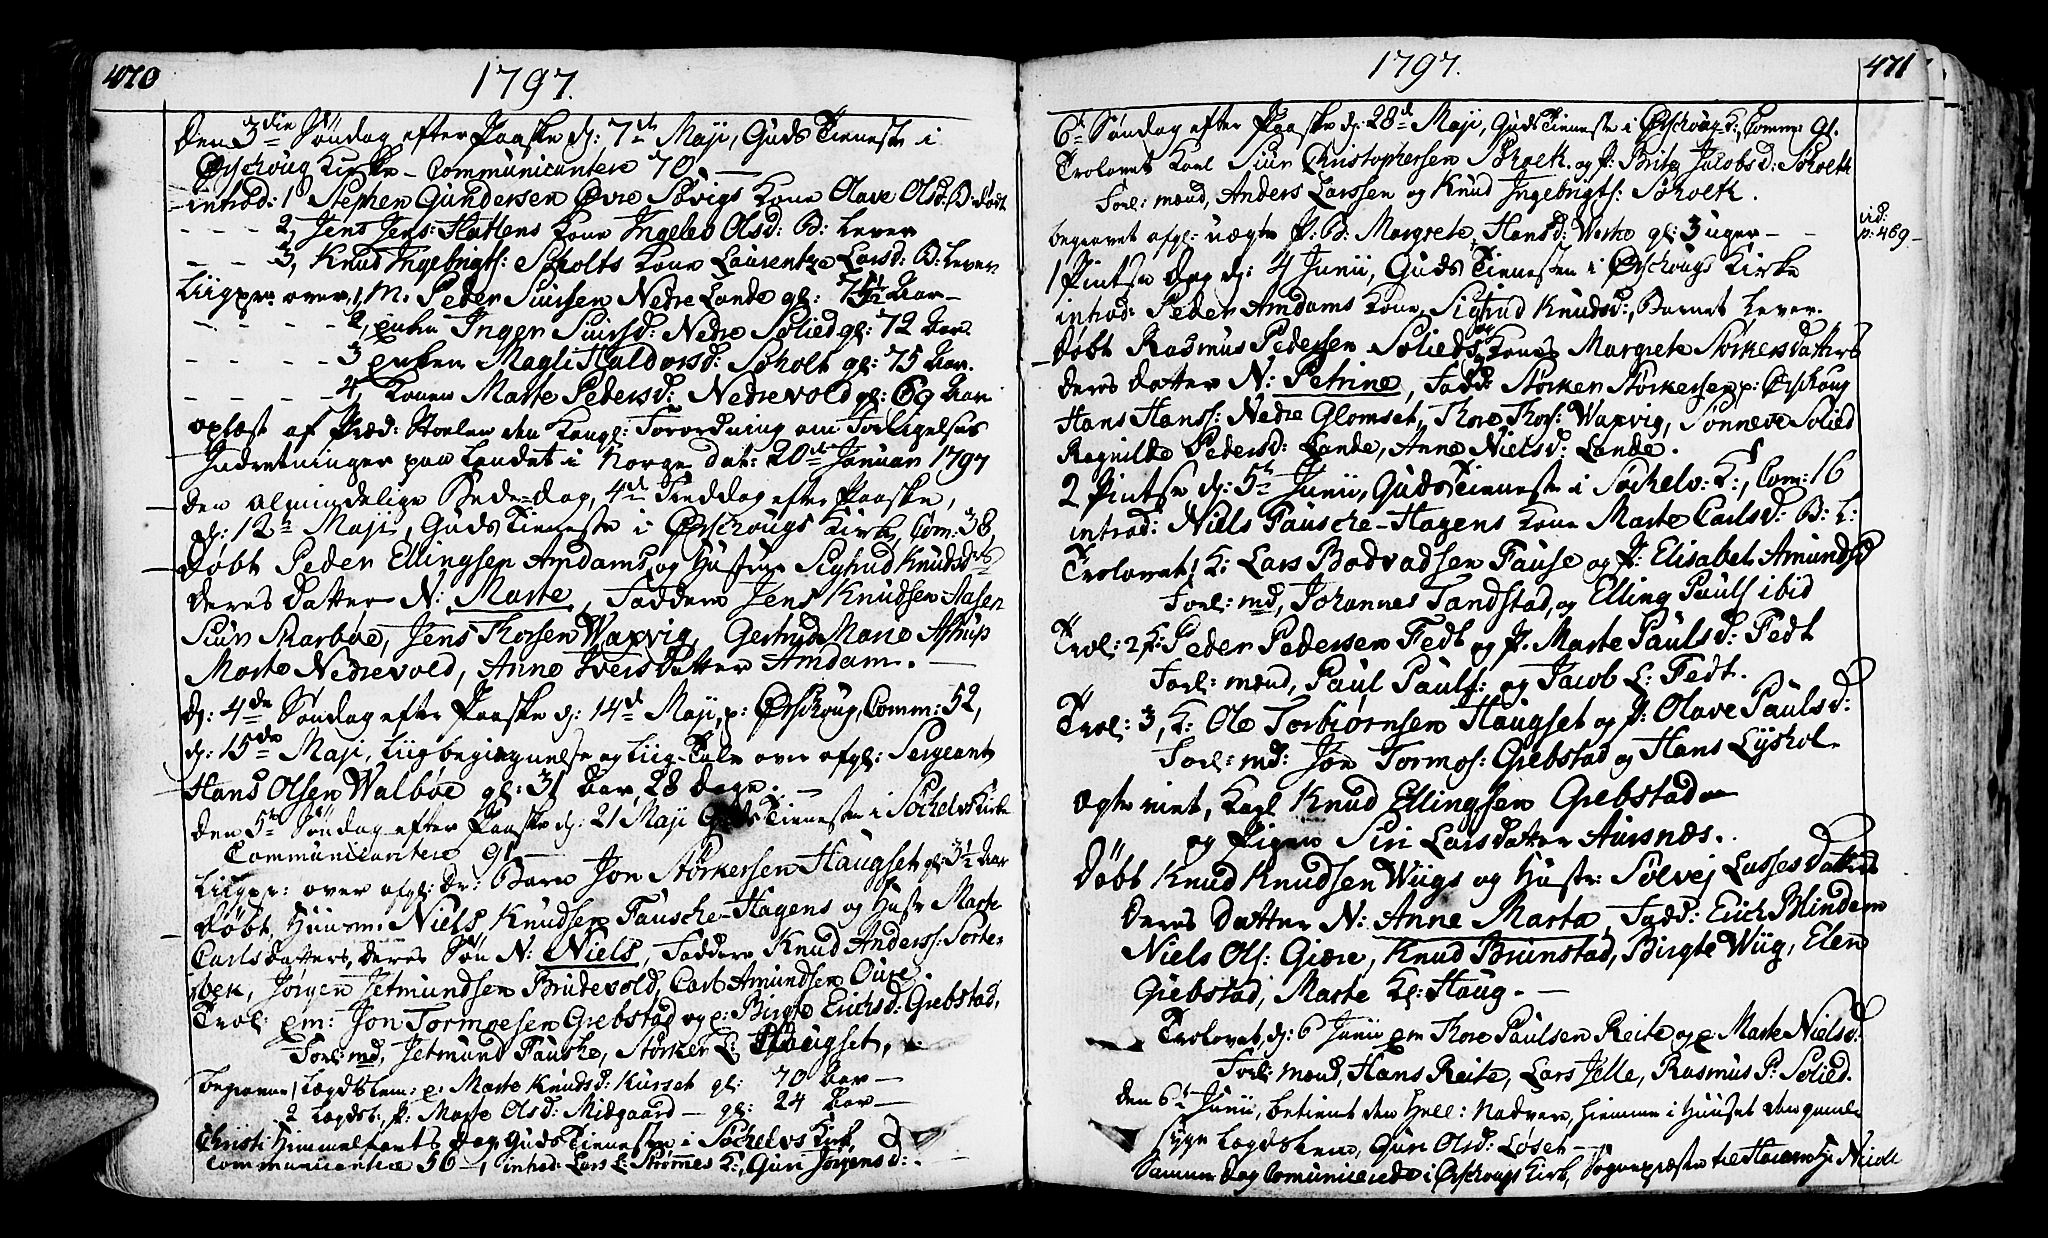 470
1797.
Den 3die Søndag efter Paaske d: 7de Maji, Guds Tieneste i
Ørschoug Kirke - Communicantere 70 -
introd: 1 Stephen Gundersen Øvre Søvigs Kone Olave Olsd: B: død
2, Jens Jens: Hatlens Kone Ingeb: Olsd: B: Lever
3, Knud Ingebrigts: Scholts Kone Laurentze Larsd: B: Lever
Liigpr: over, 1, M. Peder Siursen Nedre Lande gl: 75½ Aar -
2, Enken Inger Siursd: Nedre Solied gl: 72 Aar.
3 Enken Magli Haldorsd: Søholt gl: 75 Aar.
4, Konen Marte Pedersd: Nedrevold gl: 69 Aar
oplæst af Præd: Stoelen den Kongl: Forordning om Forligelses
Indretninger paa Landet i Norge dat: 20de Januari 1797
den almindelige Bede-dag, 4de Fredag efter Paaske,
d: 12te Maji, Guds Tieneste i Ørschougs Kirke, Com: 38,
Døbt Peder Ellingsen Amdams og Hustrue Sigtrud Knudsd:
deres Datter N: Marte, Faddere Jens Knudsen Aasen
Siur Marbøe, Jens Thorsen Waxvig, Gertrud Marie Astrup
Marte Nedrevold, Anne Iversdatter Amdam. -
d: 4de Søndag efter Paaske d: 14de Maji, p: Ørschoug, Comm: 52,
d: 15de Maji, Liigbegiengnelse og Liig-Tale over afgl: Sergeant
Hans Olsen Walbøe gl: 31 Aar 28 dage. -
den 5te Søndag efter Paaske d: 21 Maji Guds Tieneste i Søchelvs Kirke
Communicantere 91 -
Liigpr: over afgl: Dr: Barn Jon Størkersen Haugset gl: 3½ Aar
Døbt, Huusm: Niels Knudsen Fausche-Hagens og Hustr Marte
Carlsdatters, deres Søn N: Niels, Faddere Knud Anderss: Sorte-
bek, Jørgen Jetmundsen Brudevold, Carl Amundsen Oure.
Trol: em: Jon Tormoesen Grebstad og p: Birgte Erichsd: Grebstad,
Forl: md, Jetmund Fauske, Størker L: Haugset,
begravne 1 Lægdslem: p: Marte Knudsd: Kurset gl: 70 Aar -
2 Lægdsl: p: Marte Olsd: Midgaard - gl: 24 Aar -
Christi Himmelfarts Dag, Guds Tieneste i Søchelvs Kirk,
Communicantere 56 -, introd: Lars L: Strømmes K:, Guri Jørgensd: -
1797.
471
6te Søndag efter Paaske d: 28de Maji, Guds Tieneste i Ørschoug K:, Comm: 91.
Trolovet Karl Siur Christophersen Søholt og P: Brite Jacobsd: Søholt
Forl: mænd, Anders Larssen og Knud Ingebrigts: Søholt.
begravet afgl: uægte P: B: Margrete Hansd: Werke gl: 3 uger -
vid:
p: 469 -
1 Pintse Dag d: 4 Junii, Guds Tieneste i Ørschougs Kirke
introd: Peder Amdams Kone Sigtrud Knudsd:, Barnet Lever.
Døbt Rasmus Pedersen Solieds og Kones Margrete Størkersdatters
deres datter N: Petrine, Fadd: Størker Størkersen p: Ørschoug
Hans Hanss: Nedre Glomset, Thore Thors: Waxvig, Sønneve Solied
Ragnilde Pedersd: Lande, Anne Nielsd: Lande.
2 Pintse d: 5te Junii, Guds Tieneste i Søchelvs: K:, Com: 16
introd: Niels Fausche-Hagens Kone Marte Carlsd: B: L:
Trolovet, 1 K: Lars Bodvadsen Fause og P: Elisabet Amundsd
Forl: md, Johannes Tandstad, og Elling Pauls ibid
Trol: 2 K: Peder Pedersen Fedt og P. Marte Paulsd: Fedt
Forl: mænd, Paul Pauls: og Jacob L: Fedt.
Trol: 3, K: Ole Torbiørnsen Haugset og P: Olave Paulsd:
Forl: md: Jon Tormos: Grebstad og Hans Lyshol
Ægteviet, Karl Knud Ellingsen Grebstad
og Pigen Siri Larsdatter Aursnæs.
Døbt Knud Knudsen Wiigs og Hustr: Solvej Lassesdatters
deres Datter N: Anne Marta, Fadd: Erich Blindem
Niels Ols: Giære, Knud Brunstad, Birgte Wiig, Elen
Grebstad, Marte Kl: Haug. -
Trolovet, d: 6 Junii em Thore Paulsen Reite og p: Marte Nielsd:
Forl: mænd, Hans Reite, Lars Jelle, Rasmus P: Solied.
Den 6te Junii, betient den Hell: Nadvere, hiemme i Huuset den gamle
syge Lægdslem, Guri Olsd: Løset -
Samme Dag Comunicerede i Ørschougs Kirk, Sognepræsten til Haram Hr